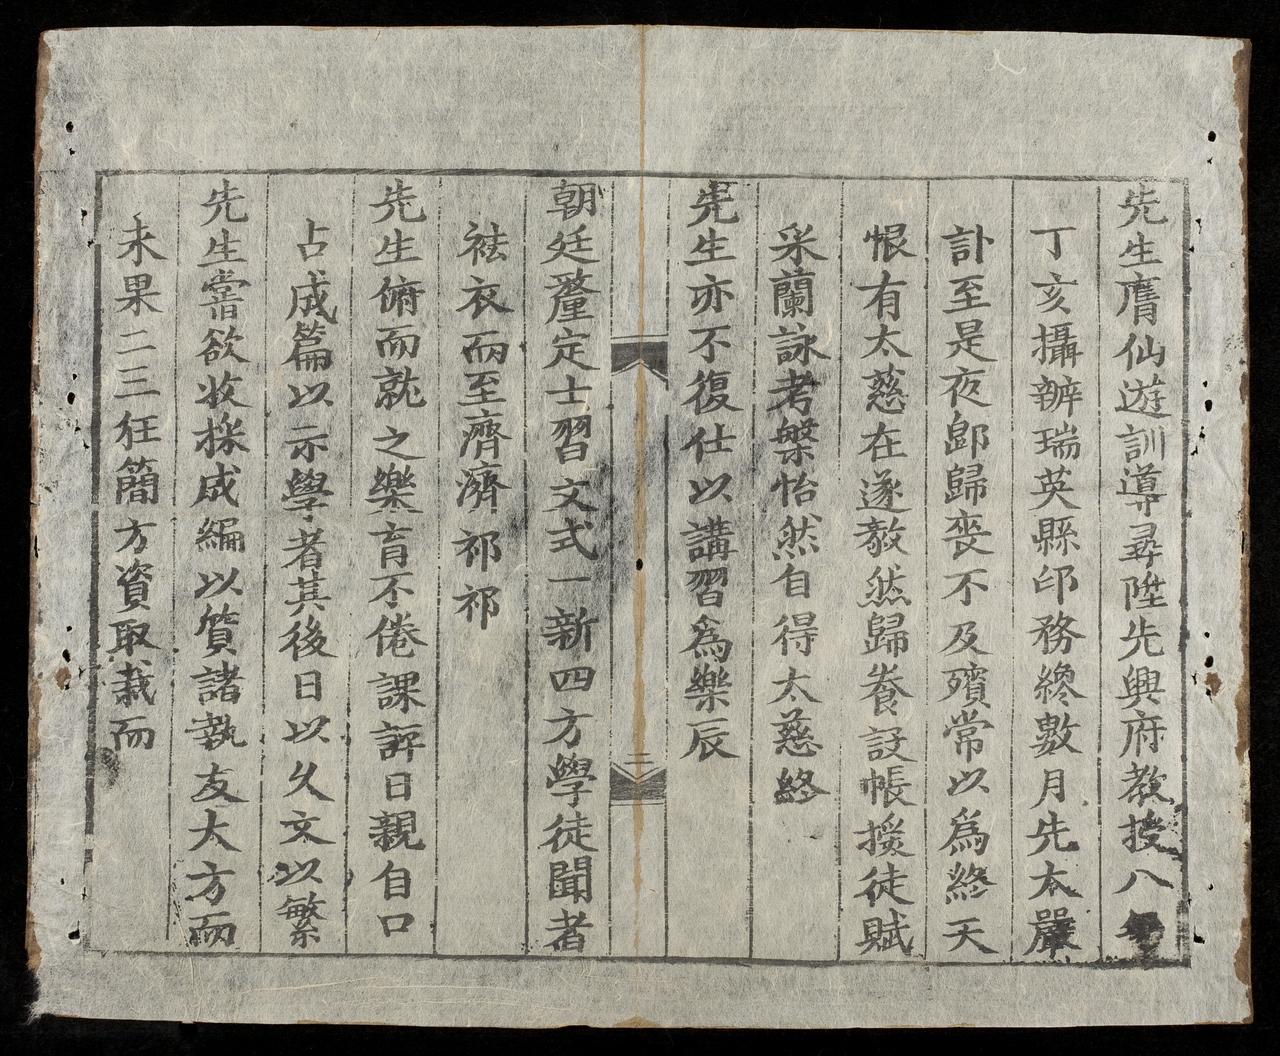 先生膺仙遊訓導尋陞先興府教授八
丁亥攝辦瑞英縣印務纔數月先太嚴
訃至是夜卽歸喪不及殯常以爲終天
恨有太慈在遂毅然歸養設帳授徒賦
采蘭詠考槃怡然自得太慈終
先生亦不復仕以講習爲樂辰
二
朝廷釐定士習文式一新四方學徒聞者
袪衣而至濟濟祁祁
先生俯而就之樂育不倦課評日親自口
占成篇以示學者其後日以久文以繁
先生嘗欲收採成編以質諸執友大方而
未果二三狂簡方資取裁而